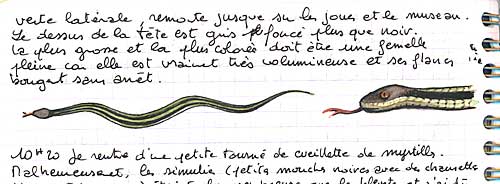 verte latérale, remonte jusque sur les joues et le museau.
Le dessus de la tête est gris foncé plus que noir.
La plus grosse et la plus colorée doit être une femelle
pleine car elle est vraiment très volumineuse et ses flancs
bougent sans arrêt.
10H20 Je rentre d'une petite tourné de cueillette de myrtilles.
Malheureusement, les simulies (petites mouches noires avec des chaussettes